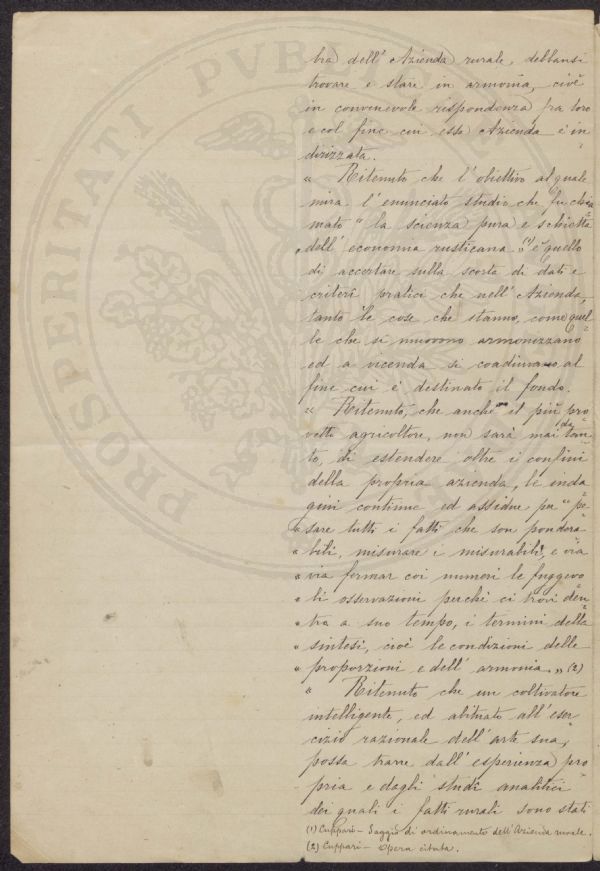 PROSPERITATI PVBLICAE
bra dell' Azienda rurale, debbansi
trovare e stare in armonia, cioè
in convenevole rispondenza fra loro
e col fine cui essa Azienda è in
dirizzata.
" Ritenuto che l'obiettivo al quale
mira l'enunciato studio che fu chia
mato " la scienza pura e schietta
dell'economia rusticana " (1) è quello
di accertare sulla scorta di dati e
criterî pratici che nell'Azienda,
tanto le cose che stanno, come quel-
le che si muovono armonizzano
ed a vicenda si coadiuvano al
fine cui è destinato il fondo.
" Ritenuto, che anche il più pro-
vetto agricoltore, non sarà mai da tan-
to, di estendere oltre i confini
della propria azienda, le inda
gini continue ed assidue per " pe-
" sare tutti i fatti che son pondera
" bili, misurare i misurabili, e via
" via fermar coi numeri le fuggevo
" li osservazioni perchè ci trovi den-
" tro a suo tempo, i termini della
" sintesi, cioè le condizioni delle
" proporzioni e dell'armonia " (2)
" Ritenuto che un coltivatore
intelligente, ed abituato all'eser
cizio razionale dell'arte sua,
possa trarre dall'esperienza pro
pria e dagli studî analitici
dei quali i fatti rurali sono stati
(1) Cuppari - Saggio di ordinamento dell'Azienda rurale.
(2) Cuppari - Opera citata.